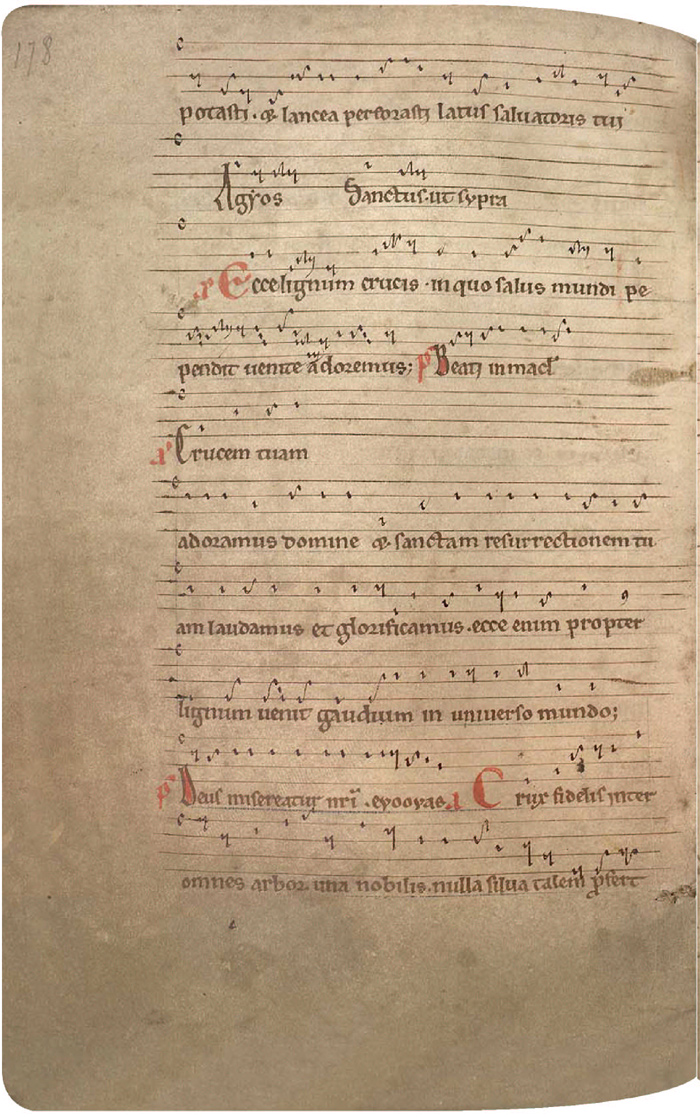 178
potasti · & lancea perforasti latus saluatoris tui
Agyos Sanctus · ut sypra
Ecce lignum crucis · in quo salus mundi pe
pendit uenite adoremus; p Beati inmacl
a Crucem tuam
adoramus domine & sanctam resurrectionem tu
am laudamus et glorificamus · ecce enim propter
lignum uenit gaudium in uniuerso mundo;
p Deus misereatur nrī · eyooyas a Crux fidelis inter
omnes arbor una nobilis · nulla silua talem ꝓfert